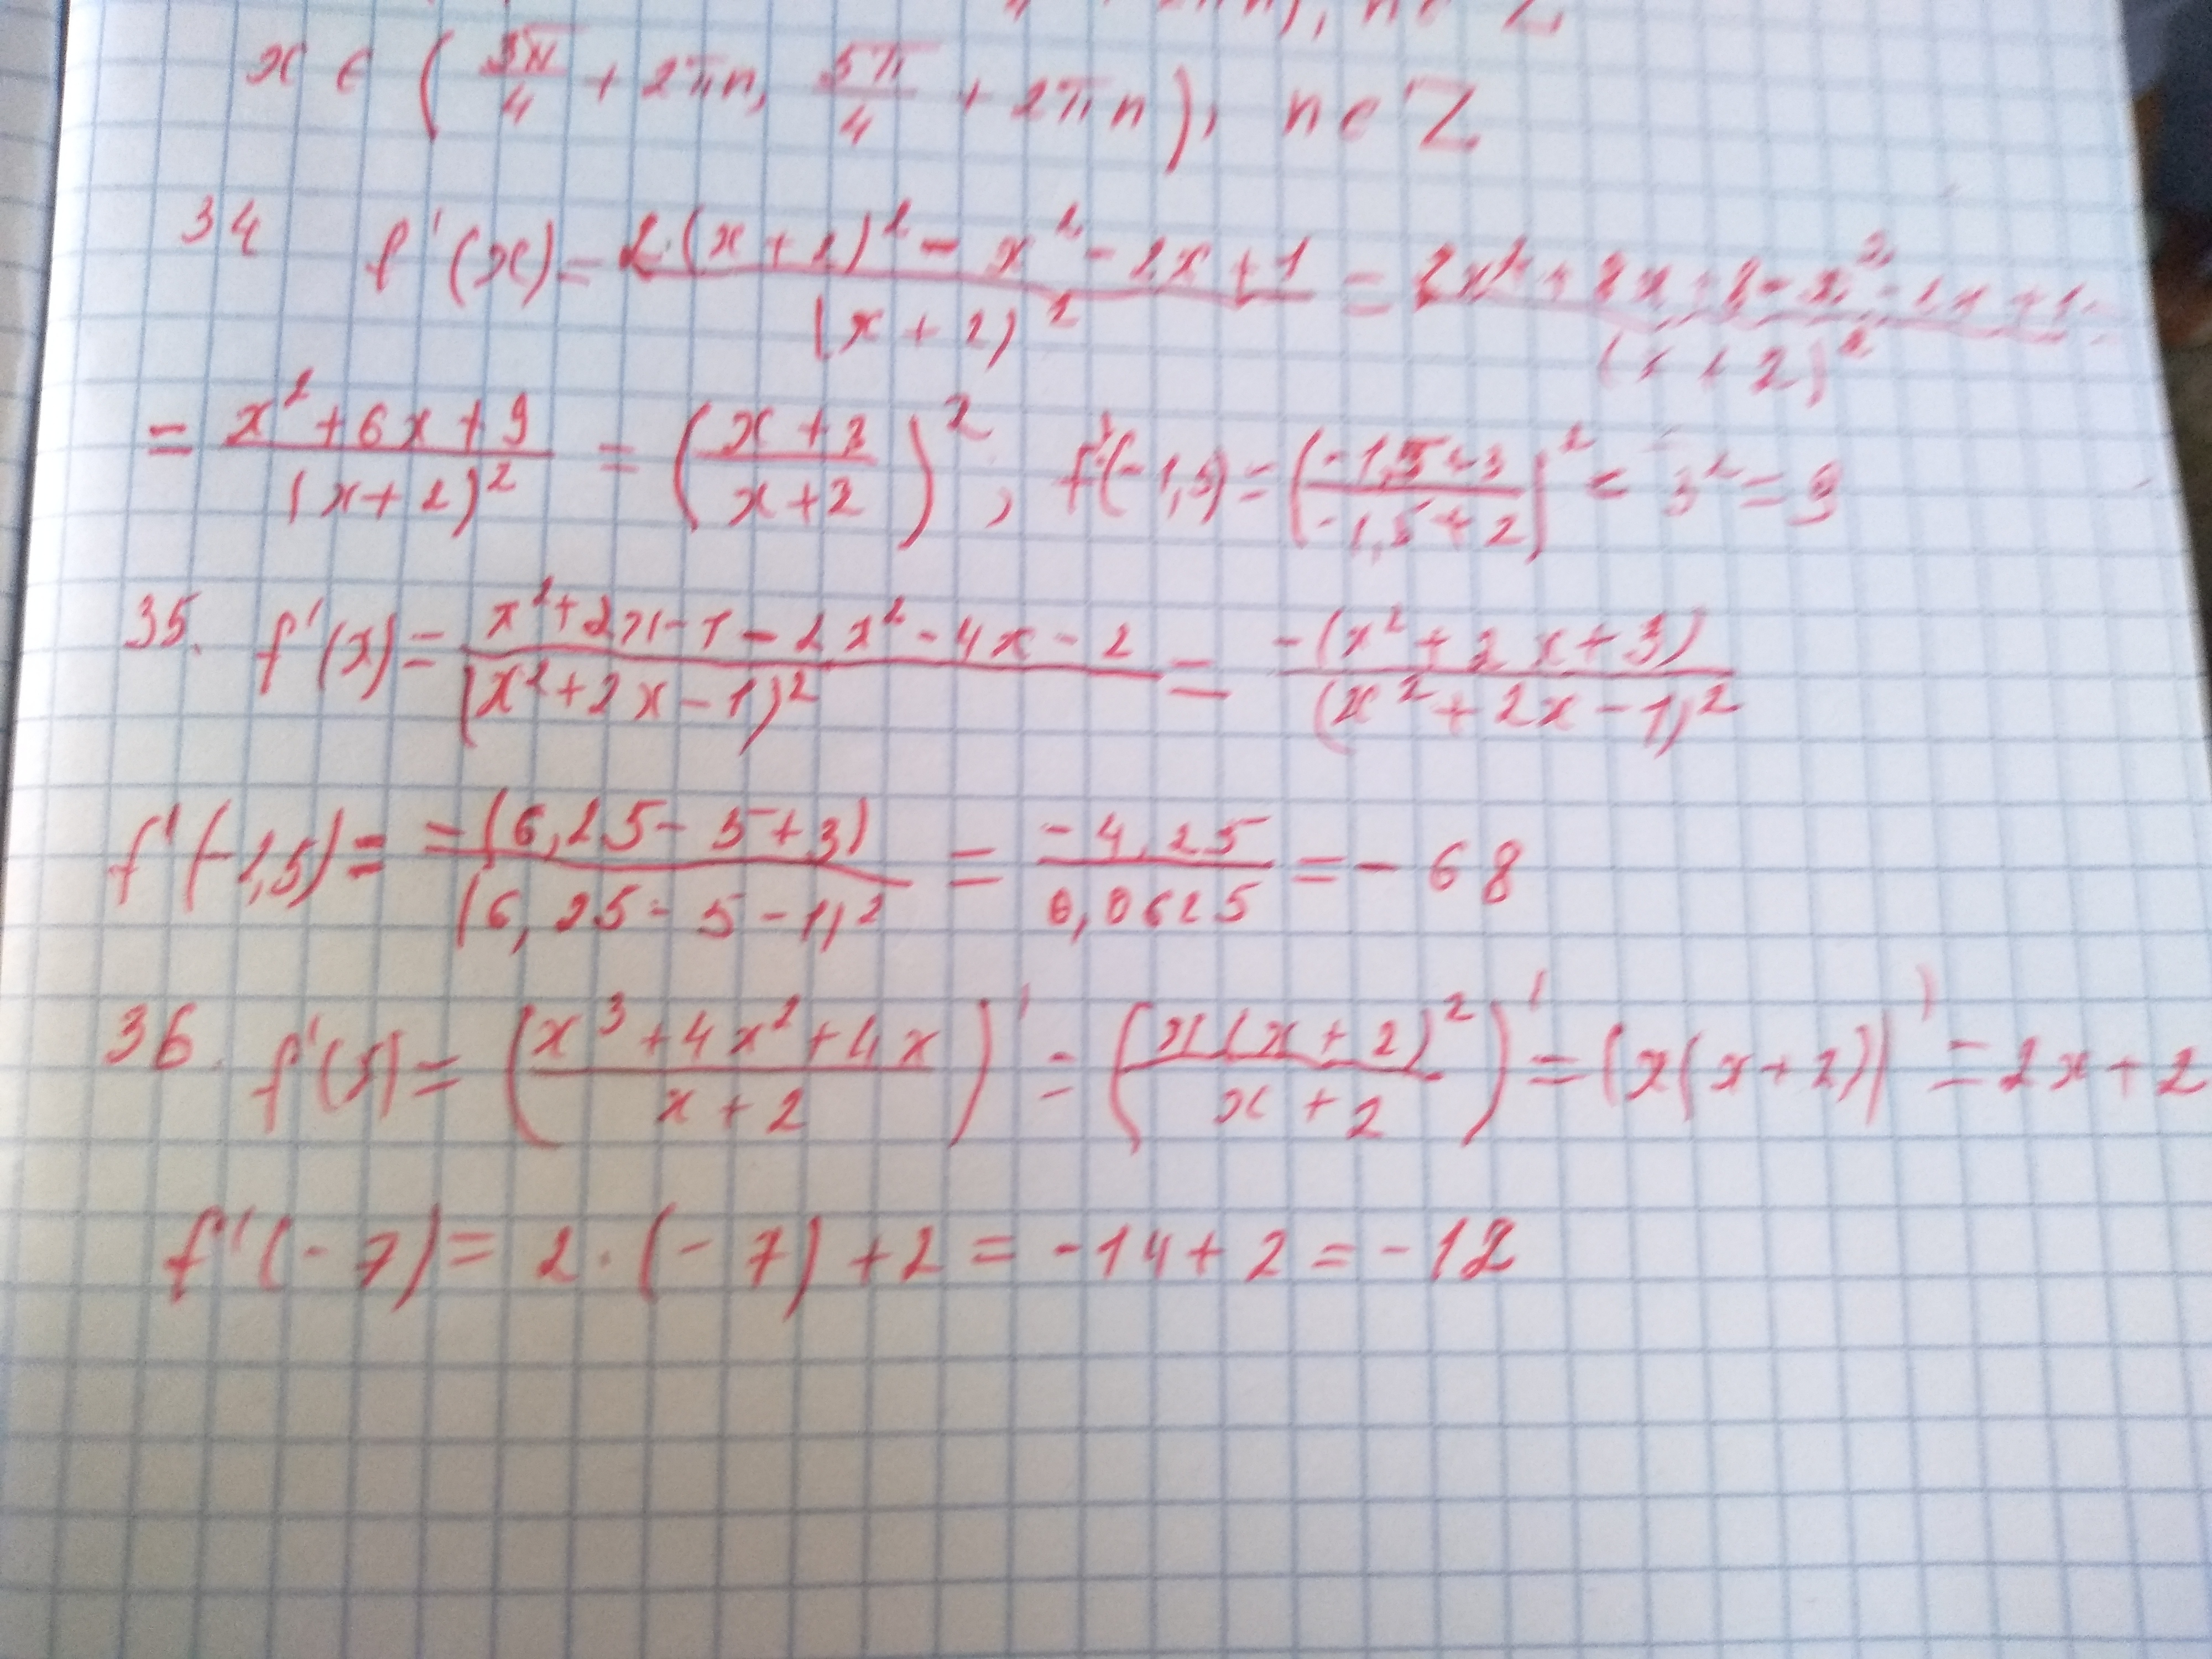 n ∈ Z
x ∈ (3π/4 + 2πn, 5π/4 + 2πn), n ∈ Z
34 f'(x) = (2·(x+2)² - x² - 2x + 1)/(x+2)² = (2x² + 8x + 8 - x² - 2x + 1)/(x+2)² =
= (x² + 6x + 9)/(x+2)² = ((x+3)/(x+2))², f'(-1,5) = ((-1,5+3)/(-1,5+2))² = 3² = 9
35. f'(x) = (x² + 2x - 1 - 2x² - 4x - 2)/(x² + 2x - 1)² = -(x² + 2x + 3)/(x² + 2x - 1)²
f'(-2,5) = -(6,25 - 5 + 3)/(6,25 - 5 - 1)² = -4,25/0,0625 = -68
36. f'(x) = ((x³ + 4x² + 4x)/(x+2))' = ((x(x+2)²)/(x+2))' = (x(x+2))' = 2x + 2
f'(-7) = 2·(-7) + 2 = -14 + 2 = -12